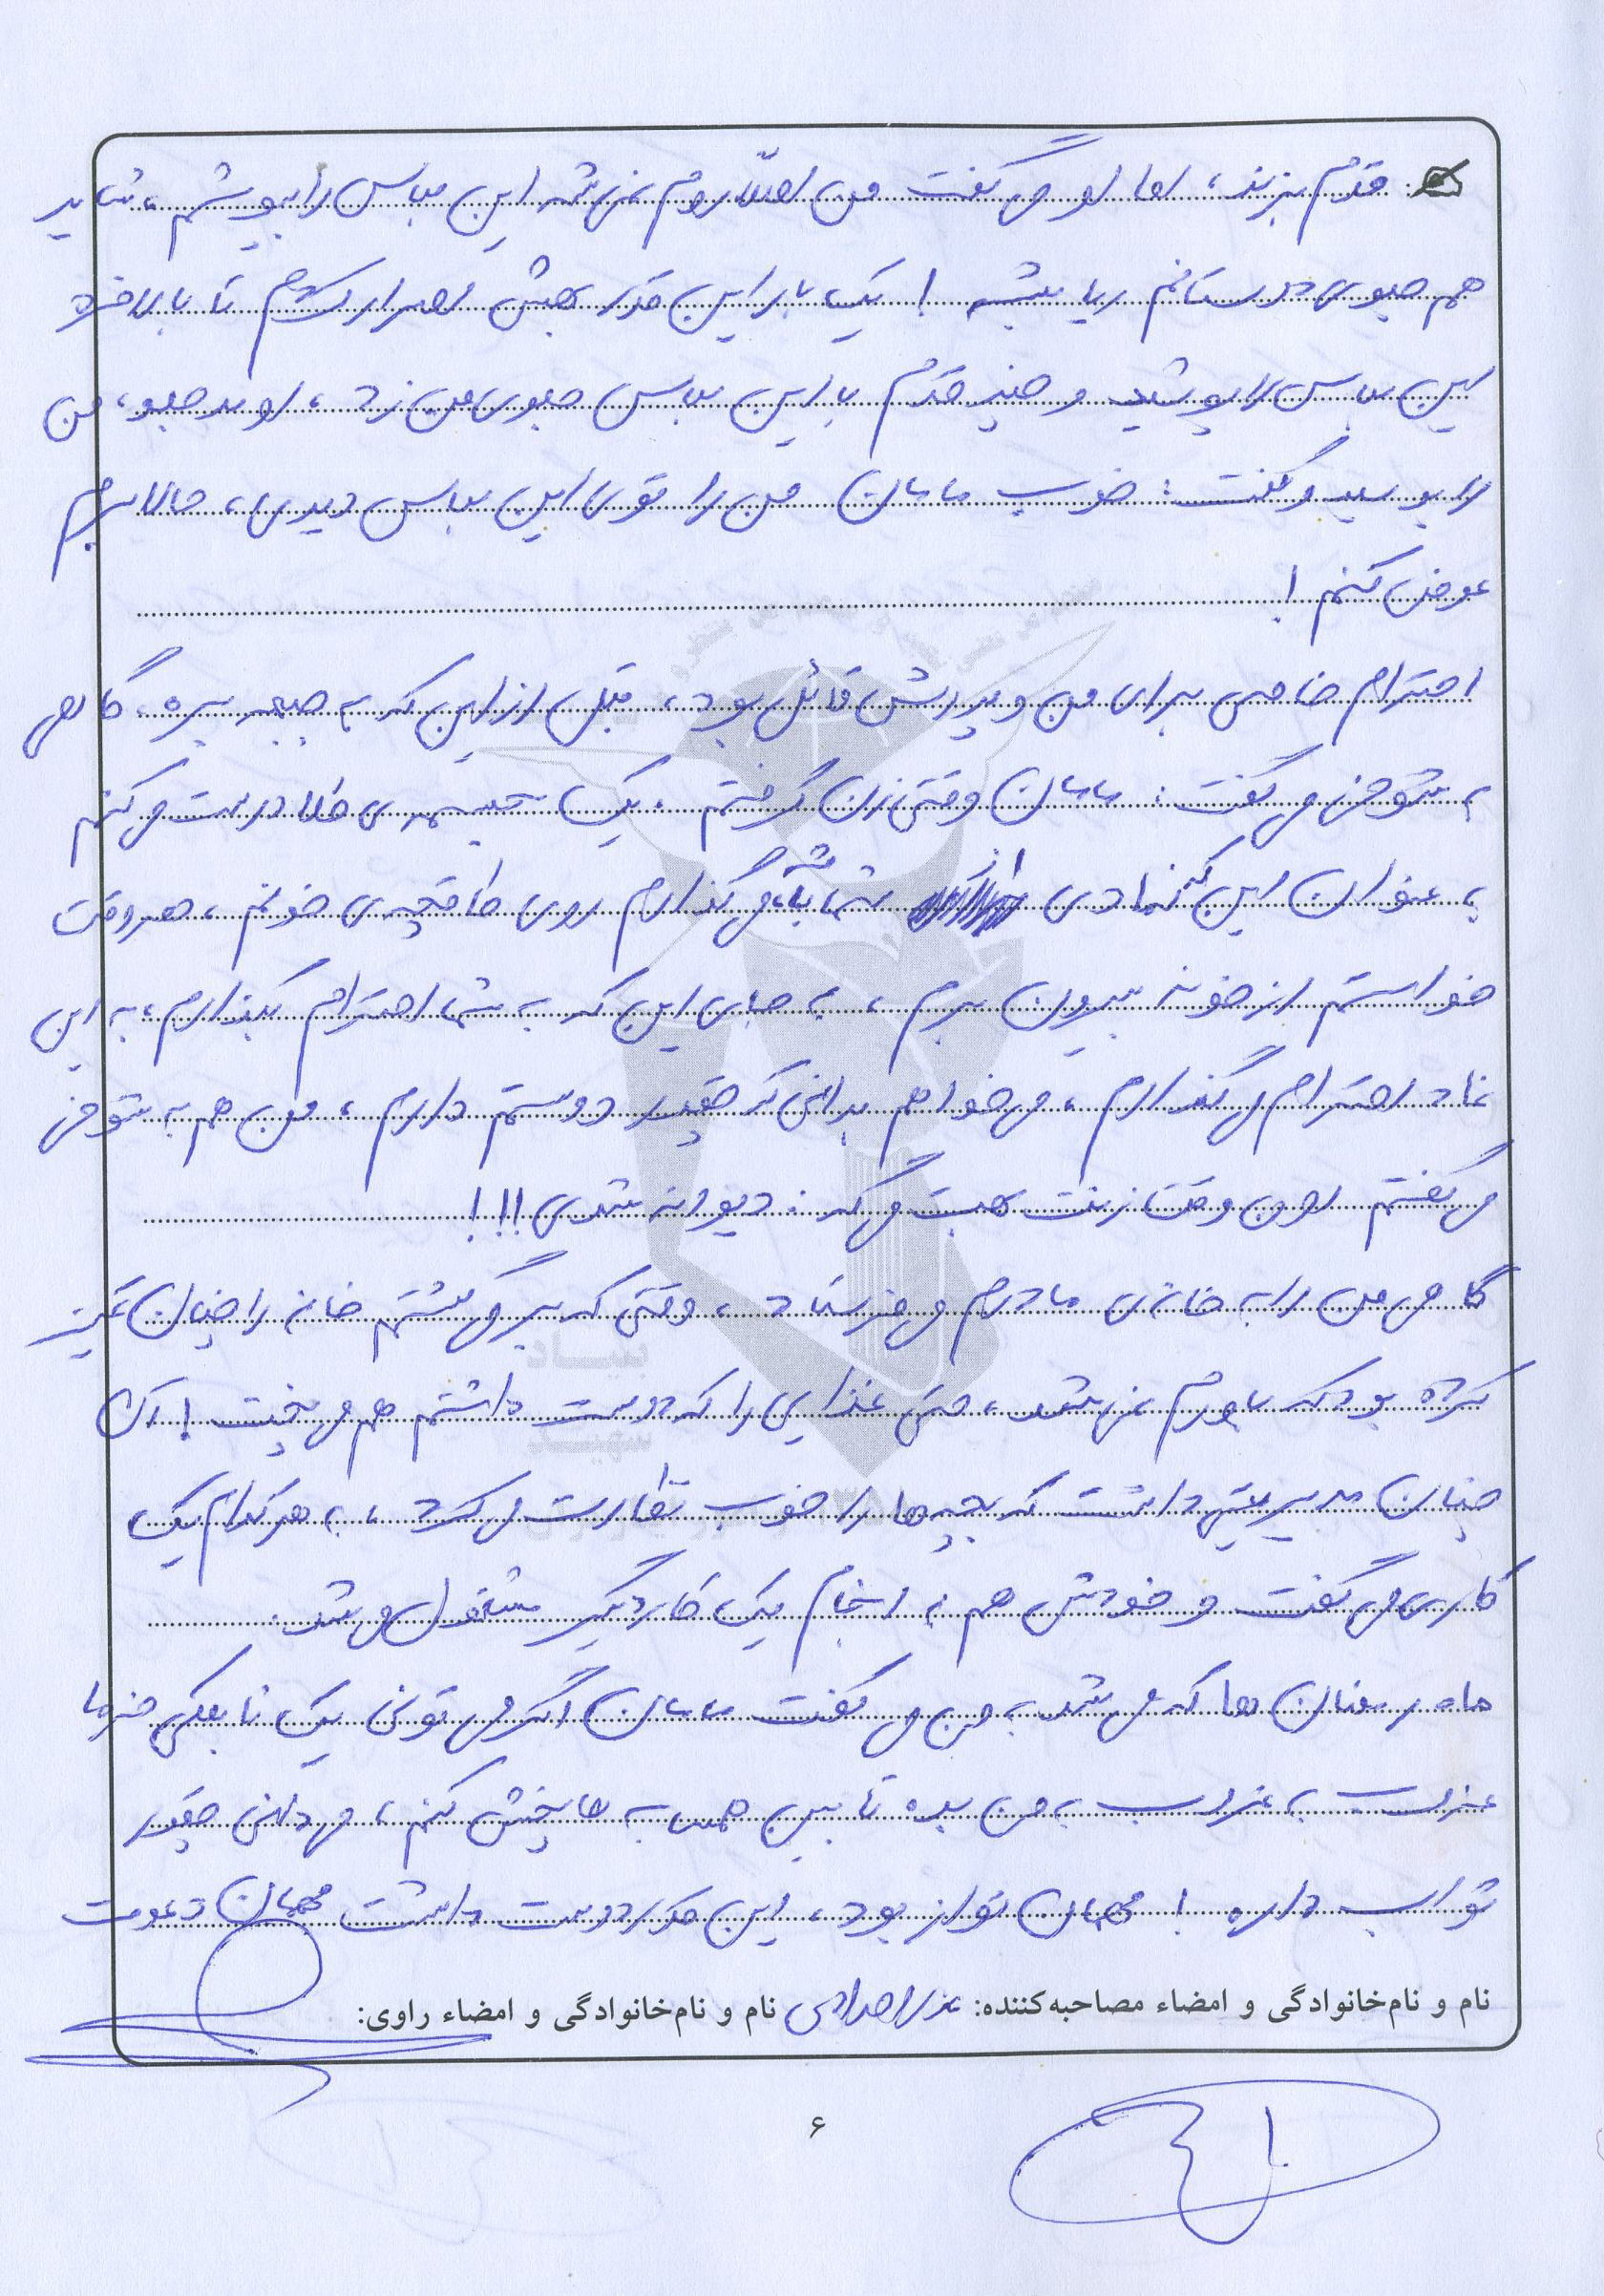 قدم بزند، اما او می گفت من اصلاً روم نمی شه این لباس را بپوشم، شاید
هم جلوی دوستانم ریا بشه! یک بار این قدر بهش اصرار کردم تا بالاخره
این لباس را پوشید و چند قدم با این لباس جلوی من زد، اومد جلو، من
را بوسید و گفت: خوب مامان من را توی این لباس دیدی، حالا برم
عوض کنم!
احترام خاصی برای من و پدرش قائل بود، قبل از این که به جبهه بره، گاهی
به شوخی می گفت: مامان وقتی زن گرفتم، یک مجسمه ی طلا درست می کنم
به عنوان این که نمادی از شما باشه می گذارم روی طاقچه ی خونم، هر وقت
خواستم از خونه بیرون برم، به جای این که به شما احترام بگذارم، به این
نماد احترام می گذارم، می خواهم بدانی که چقدر دوستم دارم، من هم به شوخی
می گفتم اون وقت زنت بهت می گه: دیوانه شدی!!!
گاهی من را به خانه ی مادرم می فرستاد، وقتی که بر می گشتم خانه را چنان تمیز
کرده بود که باورم نمی شد، حتی غذایی را که دوست داشتم هم می پخت! آن
چنان مدیریتی داشت که بچه ها را خوب نظارت می کرد، به هر کدام یک
کاری می گفت و خودش هم به انجام یک کار دیگر مشغول می شد.
ماه رمضان ها که می شد به من می گفت مامان اگر می تونی یک نایلکی خرما
غروب به غروب به من بده تا بین همسایه ها پخش کنم، می دانی چقدر
ثواب داره! مهمان نواز بود، این قدر دوست داشت مهمان دعوت
نام و نام‌خانوادگی و امضاء مصاحبه‌کننده: نام و نام‌خانوادگی و امضاء راوی:
۶